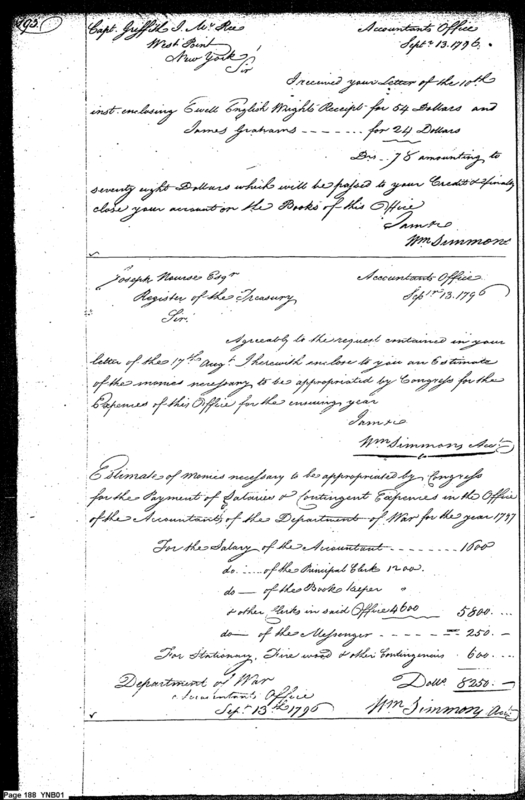 193.
Capt. Griffith J. McRee
Accountants Office
West Point
Septr. 13. 1796.
New York
Sir
I received your Letter of the 10th
inst enclosing Ewell English Wrights Receipt for 54 Dollars and
James Grahams - - - - - - - for 24 Dollars
Drs. . 78 amounting to
seventy eight Dollars which will be passed to your Credit & finally
close your account on the Books of this Office
I am &c
Wm Simmons
Joseph Nourse Esqr.
Accountants Office
Register of the Treasury
Sepr. 13. 1796
Sir.
Agreeably to the request contained in your
letter of the 17th Augt. I herewith enclose to you an Estimate
of the monies necessary to be appropriated by Congress for the
Expences of this Office for the ensuing year
I am &c
Wm Simmons Acct.
Estimate of monies necessary to be appropriated by Congress
for the Payment of Salaries & Contingent Expences in the Office
of the Accountants of the Department of War for the year 1797
For the Salary of the Accountant - - - - - - - 1600
do ..... of the Principal Clerk 1200.
do — of the Book keeper "
& other Clerks in said Office 4600 5800 ....
do — of the Messenger - - - - - - = 250. —
For Stationary, Fire wood & other Contingencies . 600 ....
Department of War
Dolls. 8250. —
Accountants Office
Sepr. 13th 1796
Wm Simmons Acct.
Page 188 YNB01